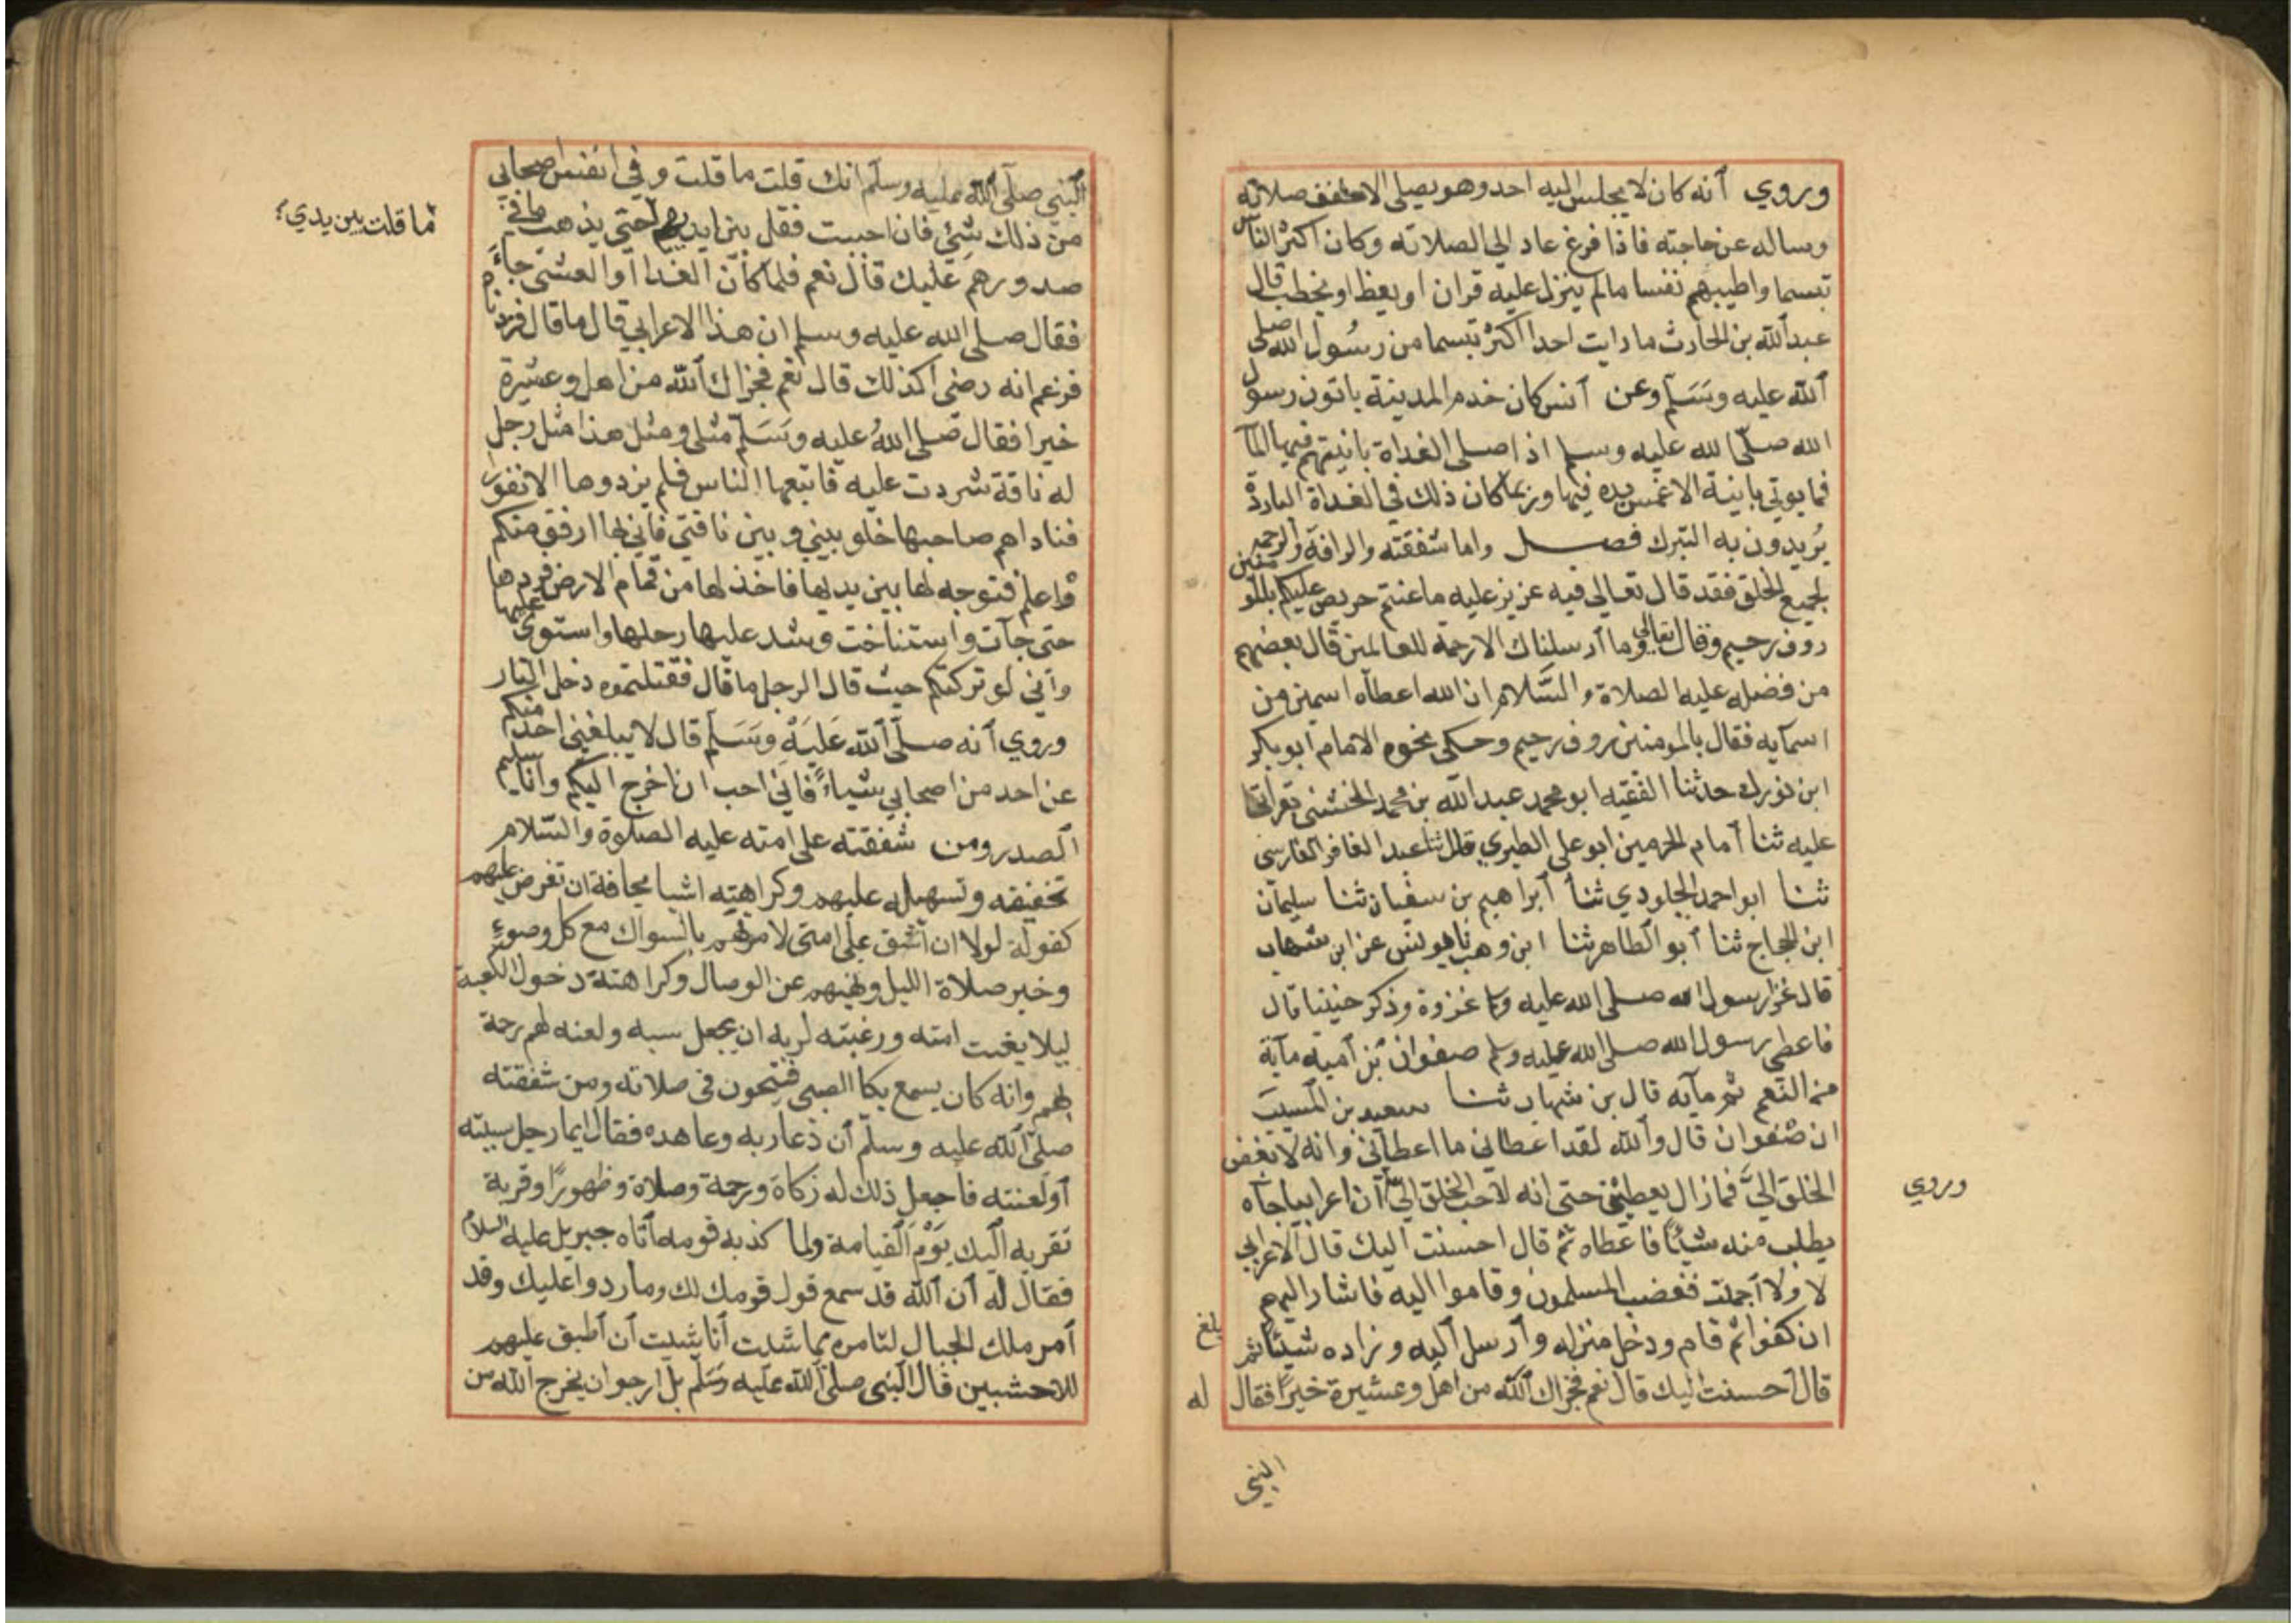 وروي أنه كان لا يجلس اليه احد وهو يصلي الا خفف صلاته
وساله عن حاجته فاذا فرغ عاد الي الصلاته وكان اكثر الناس
تبسما واطيبهم نفسا مالم ينزل عليه قران او يعظ او يخطب قال
عبد الله بن الحارث ما رايت احدا اكثر تبسما من رسول الله صلي
الله عليه وسلم وعن أنس كان خدم المدينة ياتون رسول
الله صلي الله عليه وسلم اذا صلي الغداة بانيتهم فيها المآ
فما يوتي بانية الا غمس يده فيها وربما كان ذلك في الغداة الباردة
يريدون به التبرك فصل واما شفقته والرافة والرحمة
لجميع الخلق فقد قال تعالي فيه عزيز عليه ما عنتم حريص عليكم بالمومنين
روف رحيم وقال تعالي وما أرسلناك الا رحمة للعالمين قال بعضهم
من فضله عليه الصلاة والسلام ان الله اعطاه اسمين من
اسمآيه فقال بالمومنين روف رحيم وحكي نحوه الامام أبو بكر
ابن فورك حدثنا الفقيه ابو محمد عبد الله بن محمد الخشني بقراتي
عليه ثنا أمام الحرمين ابو علي الطبري قال ثنا عبد الغافر الفارسي
ثنا ابو احمد الجلودي ثنا أبراهيم بن سفيان ثنا سليمان
ابن الحجاج ثنا أبو الطاهر ثنا ابن وهب نا يونس عن ابن شهاب
قال غزا رسول الله صلي الله عليه وسلم غزوة وذكر حنينا قال
فاعطي رسول الله صلي الله عليه وسلم صفوان بن أمية مآية
من النعم ثم مآيه قال بن شهاب ثنا سعيد بن المسيب
ان صفوان قال والله لقد اعطاني ما اعطاني وانه لابغض
الخلق الي فما زال يعطيني حتي انه لاحب الخلق الي أن اعرابيا جآه
وروي
يطلب منه شيئا فاعطاه ثم قال احسنت اليك قال الاعرابي
لا ولا أجملت فغضب المسلمون وقاموا اليه فاشار اليهم
ان كفوا ثم قام ودخل منزله وأرسل اليه وزاده شيئا ثم
بلغ
قال أحسنت اليك قال نعم فجزاك الله من اهل وعشيرة خيرا فقال
له
النبي
النبي صلي الله عليه وسلم انك قلت ما قلت وفي انفس اصحابي
من ذلك شئ فان احببت فقل بين ايديهم حتي يذهب ما في
ما قلت بين يدي
صدورهم عليك قال نعم فلما كان الغدا أو العشي جاء
فقال صلي الله عليه وسلم ان هذا الاعرابي قال ما قال فزدناه
فزعم انه رضي أكذلك قال نعم فجزاك الله من اهل وعشيرة
خيرا فقال صلي الله عليه وسلم مثلي ومثل هذا مثل رجل
له ناقة شردت عليه فاتبعها الناس فلم يزدوها الا نفورا
فناداهم صاحبها خلو بيني وبين ناقتي فاني لها ارفق منكم
واعلم فتوجه لها بين يديها فاخذ لها من قمام الارض فردها
حتي جآت واستناخت وشد عليها رحلها واستوي عليها
وأني لو تركتكم حيث قال الرجل ما قال فقتلتموه دخل النار
وروي أنه صلي الله عليه وسلم قال لا يبلغني احد منكم
عن احد من اصحابي شياء فاني احب ان اخرج اليكم وأنا سليم
الصدر ومن شفقته علي امته عليه الصلوة والسلام
تخفيفه وتسهيله عليهم وكراهته اشيا مخافة ان تفرض عليهم
كقوله لولا ان أشق علي امتي لامرتهم بالسواك مع كل وضوء
وخبر صلاة الليل ونهيهم عن الوصال وكراهته دخول الكعبة
ليلا يعنت امته ورغبته لربه ان يجعل سبه ولعنه لهم رحمة
لهم وانه كان يسمع بكا الصبي فيتجون في صلاته ومن شفقته
صلي الله عليه وسلم أن دعا ربه وعاهده فقال ايما رجل سببته
أو لعنته فاجعل ذلك له زكاة ورحمة وصلاة وطهورا وقربة
تقربه اليك يوم القيامة ولما كذبه قومه أتاه جبريل عليه السلام
فقال له أن الله قد سمع قول قومك لك وما ردوا عليك وقد
أمر ملك الجبال لتامره بما شئت أنا شيت أن أطبق عليهم
للاخشبين قال النبي صلي الله عليه وسلم بل ارجو ان يخرج الله من